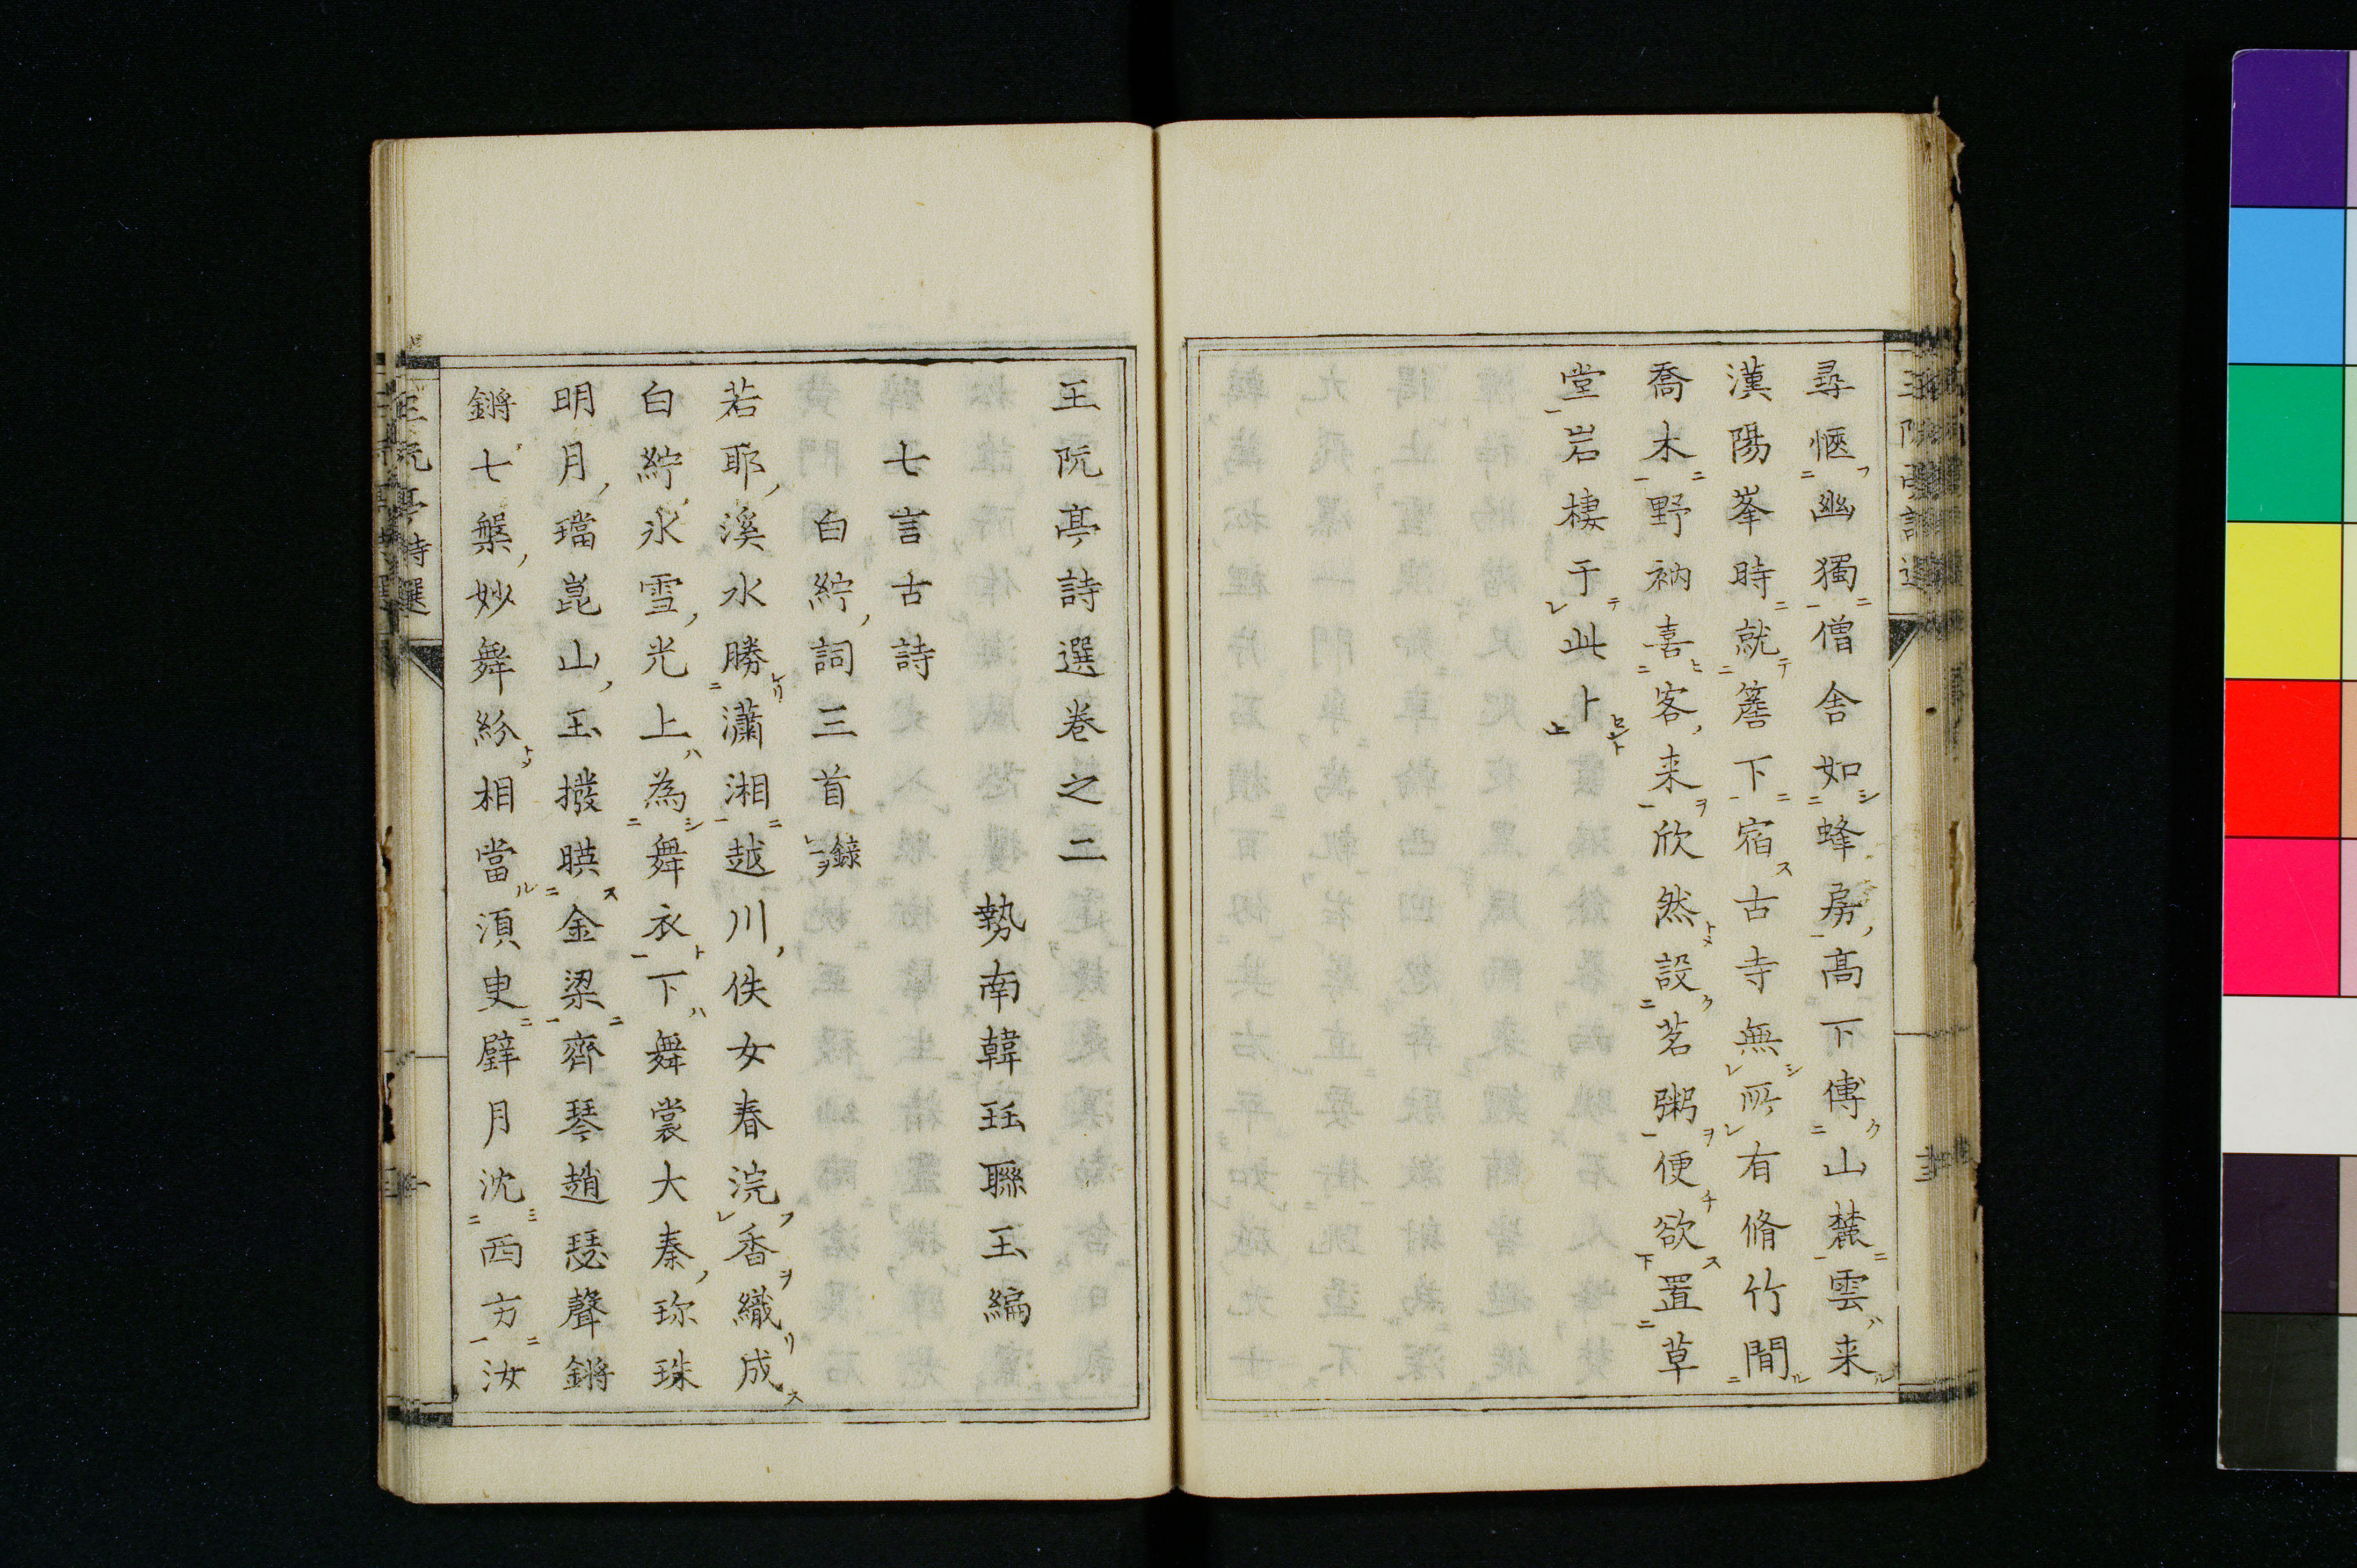 尋愜幽獨僧舎如蜂房高下傅山麓雲来
漢陽峯時就簷下宿古寺無所有脩竹間
喬木野衲喜客来欣然設茗粥便欲置草
堂岩棲于此卜
王阮亭詩選巻之二
勢南韓珏聯玉編
七言古詩
白紵詞三首録一
若耶溪水勝瀟湘越川佚女春浣香織成
白紵氷雪光上為舞衣下舞裳大秦珎珠
明月璫崑山玉撥暎金梁齊琴趙瑟聲鏘
鏘七槃妙舞紛相當湏臾壁月沈西方汝
王阮亭詩選